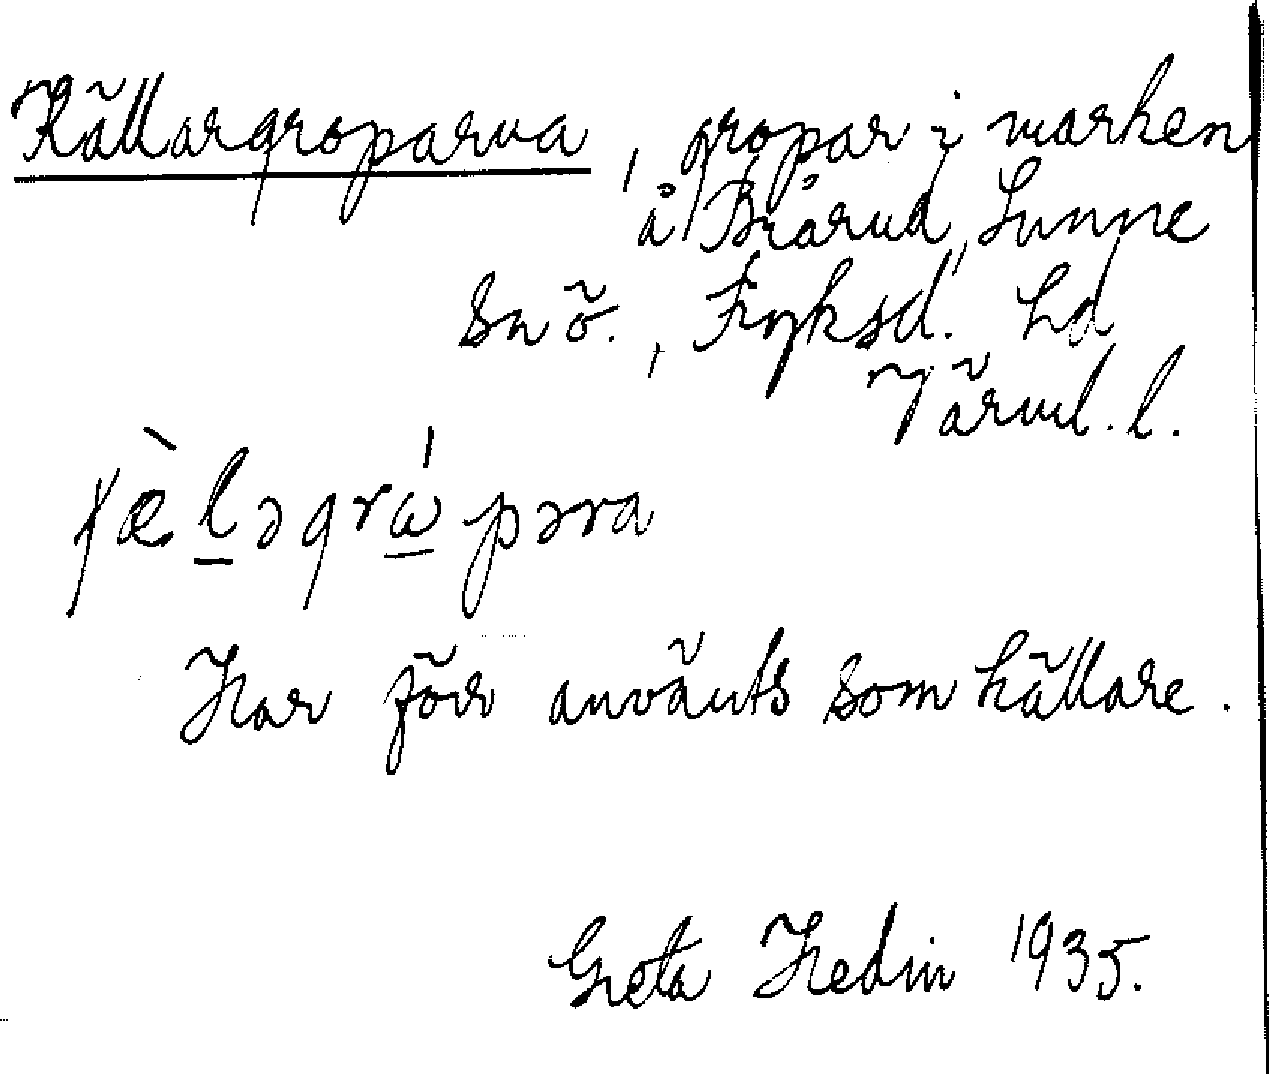 Källargroparva, gropar i marken
å Brårud, Sunne
sn ö., Fryksd. hd
Värml. l.
ɟæ̀lǝgrɯ́pǝrva
Har förr använts som källare.
Greta Hedin 1935.